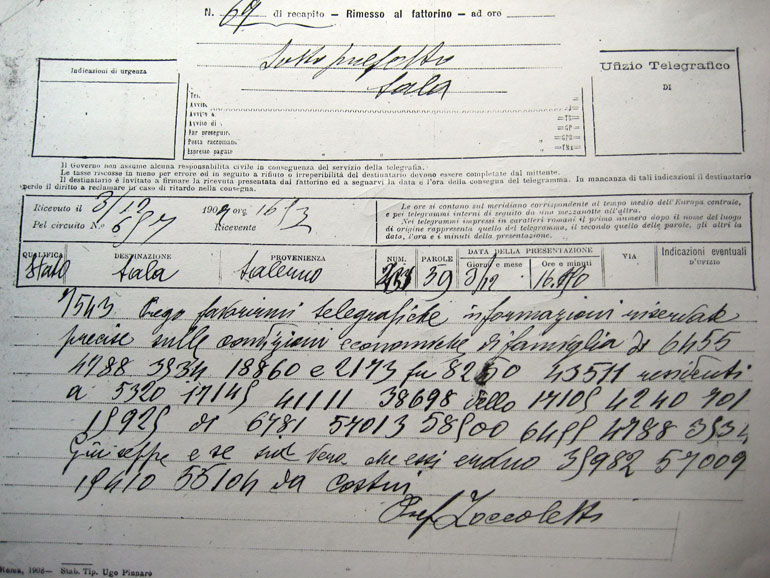 N. 69 di recapito – Rimesso al fattorino – ad ore
Sottoprefetto
Sala
Indicazioni di urgenza
Ufizio Telegrafico
DI
Tr.
Avviso di
Far proseguire
Posta raccoman.
Espresso pagato
Il Governo non assume alcuna responsabilità civile in conseguenza del servizio della telegrafia.
Le tasse riscosse in meno per errore ed in seguito a rifiuto o irreperibilità del destinatario devono essere completate dal mittente.
Il destinatario è invitato a firmare la ricevuta presentata dal fattorino ed a segnarvi la data e l'ora della consegna del telegramma. In mancanza di tali indicazioni il destinatario
perde il diritto a reclamare in caso di ritardo nella consegna.
Ricevuto il 3/12 190 ore 16
Pel circuito N.º Ricevente
Le ore si contano sul meridiano corrispondente al tempo medio dell'Europa centrale,
e pei telegrammi interni di seguito da una mezzanotte all'altra.
Nei telegrammi impressi in caratteri romani il primo numero dopo il nome del luogo
di origine rappresenta quello del telegramma, il secondo quello delle parole, gli altri la
data, l'ora e i minuti della presentazione.
QUALIFICA DESTINAZIONE PROVENIENZA NUM. PAROLE DATA DELLA PRESENTAZIONE VIA Indicazioni eventuali
Giorno e mese Ore e minuti D'UFIZIO
Stato Sala Salerno 39 3/12
1543 Prego fornirmi telegrafiche informazioni riservate
precise sulle condizioni economiche di famiglia di 6455
4788 3934 18860 e 2173 fu 8250 43511 residenti
a 5320 17149 41111 38698 dello 17109 4240 701
19929 di 6781 57013 58900 6499 4788 3934
Giuseppe e se sia vero che essi 39982 57009
19410 55104 da costui
Pref Zoccoletti
Roma, 1902— Stab. Tip. Ugo Pinnaro